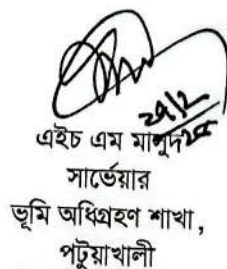 ২৫/২
এইচ এম মাসুদ
সার্ভেয়ার
ভূমি অধিগ্রহণ শাখা,
পটুয়াখালী